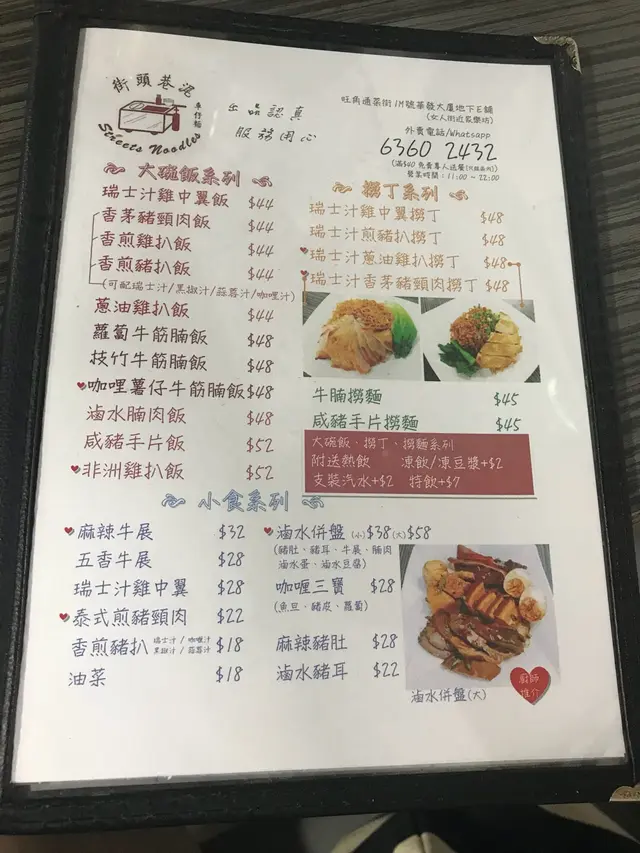 街頭巷泥
車仔麵
Streets Noodles
出品認真
服務用心
旺角通菜街1M號華發大廈地下E舖
(女人街近眾樂坊)
外賣電話/Whatsapp
6360 2432
營業時間：11:00 ~ 22:00
大碗飯系列
瑞士汁雞中翼飯 $44
香茅豬頸肉飯 $44
香煎雞扒飯 $44
香煎豬扒飯 $44
(可配瑞士汁/黑椒汁/蒜蓉汁/咖哩汁)
蔥油雞扒飯 $44
蘿蔔牛筋腩飯 $48
技竹牛筋腩飯 $48
咖哩薯仔牛筋腩飯 $48
滷水腩肉飯 $48
咸豬手片飯 $52
非洲雞扒飯 $52
撈丁系列
瑞士汁雞中翼撈丁 $48
瑞士汁煎豬扒撈丁 $48
瑞士汁蔥油雞扒撈丁 $48
瑞士汁香茅豬頸肉撈丁 $48
牛腩撈麵 $45
咸豬手片撈麵 $45
大碗飯、撈丁、撈麵系列
附送熱飲 凍飲/凍豆漿+$2
支裝汽水+$2 特飲+$7
小食系列
麻辣牛展 $32
五香牛展 $28
瑞士汁雞中翼 $28
泰式煎豬頸肉 $22
香煎豬扒 瑞士汁/咖哩汁 黑椒汁/蒜蓉汁 $18
油菜 $18
滷水併盤 (小)$38(大)$58
(豬肚、豬耳、牛展、腩肉
滷水蛋、滷水豆腐)
咖喱三寶 $28
(魚旦、豬皮、蘿蔔)
麻辣豬肚 $28
滷水豬耳 $22
滷水併盤(大)
廚師
推介